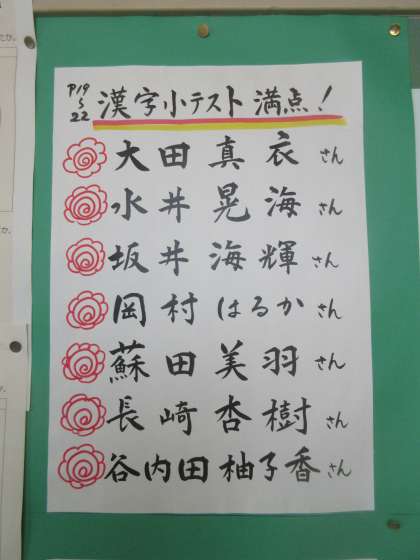 P19〜22 漢字小テスト 満点！
大田 真衣 さん
水井 晃海 さん
坂井 海輝 さん
岡村 はるか さん
蘇田 美羽 さん
長崎 杏樹 さん
谷内田 柚子香 さん